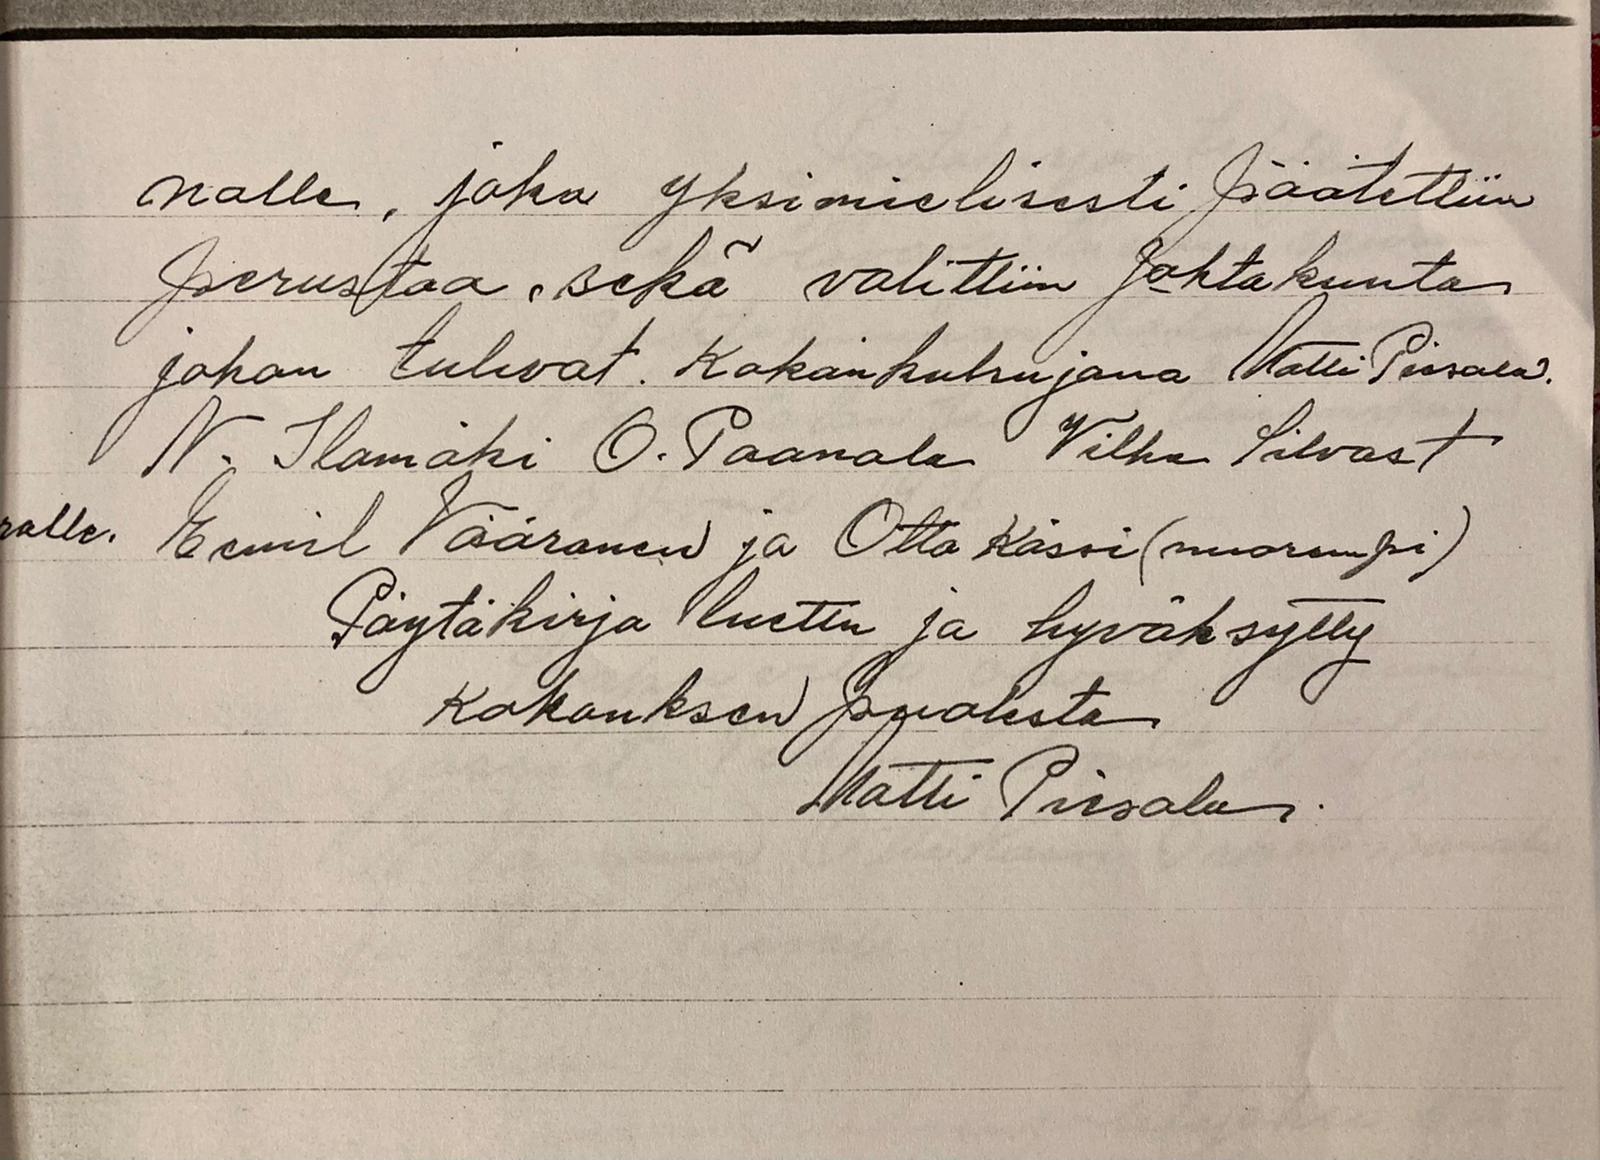 nalle, joka yksimielisesti päätettiin
perustaa, sekä valittiin Johtakunta
johon tulivat. Kokoinkutsujana Matti Piesala.
N. Ilomäki O. Paanala Vilho Silvast
nalle. Eemil Vääränen ja Otto Kässi (nuorempi)
Pöytäkirja luettu ja hyväksytty
Kokouksen puolesta
Matti Piesala.